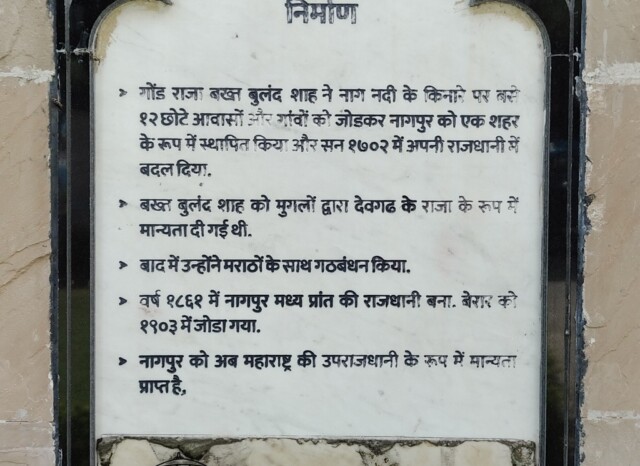 निर्माण
➤ गोंड राजा बख्त बुलंद शाह ने नाग नदी के किनारे पर बसे
१२ छोटे आवासों और गांवों को जोडकर नागपुर को एक शहर
के रूप में स्थापित किया और सन १७०२ में अपनी राजधानी में
बदल दिया.
➤ बख्त बुलंद शाह को मुगलों द्वारा देवगढ के राजा के रूप में
मान्यता दी गई थी.
➤ बाद में उन्होंने मराठों के साथ गठबंधन किया.
➤ वर्ष १८६१ में नागपुर मध्य प्रांत की राजधानी बना. बेरार को
१९०३ में जोडा गया.
➤ नागपुर को अब महाराष्ट्र की उपराजधानी के रूप में मान्यता
प्राप्त है,